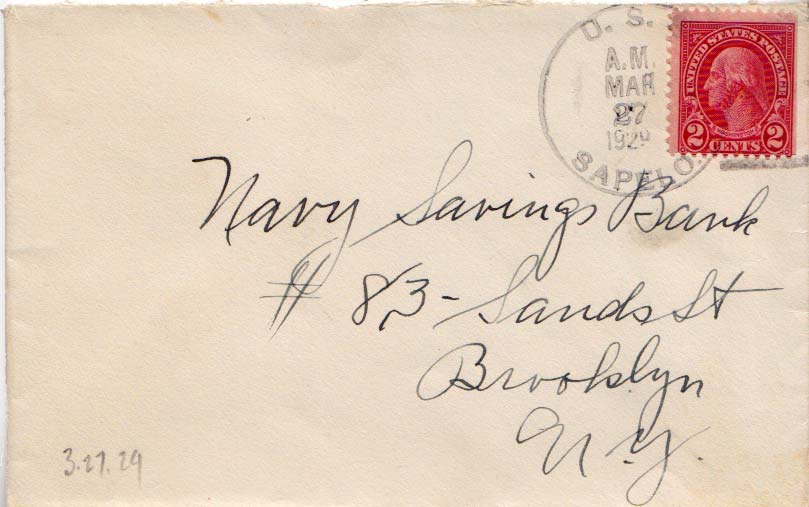 U. S.
A.M.
MAR
27
1929
SAPELO
UNITED STATES POSTAGE
WASHINGTON
2 CENTS 2
Navy Savings Bank
# 83 - Sands St
Brooklyn
N.Y.
3.27.29